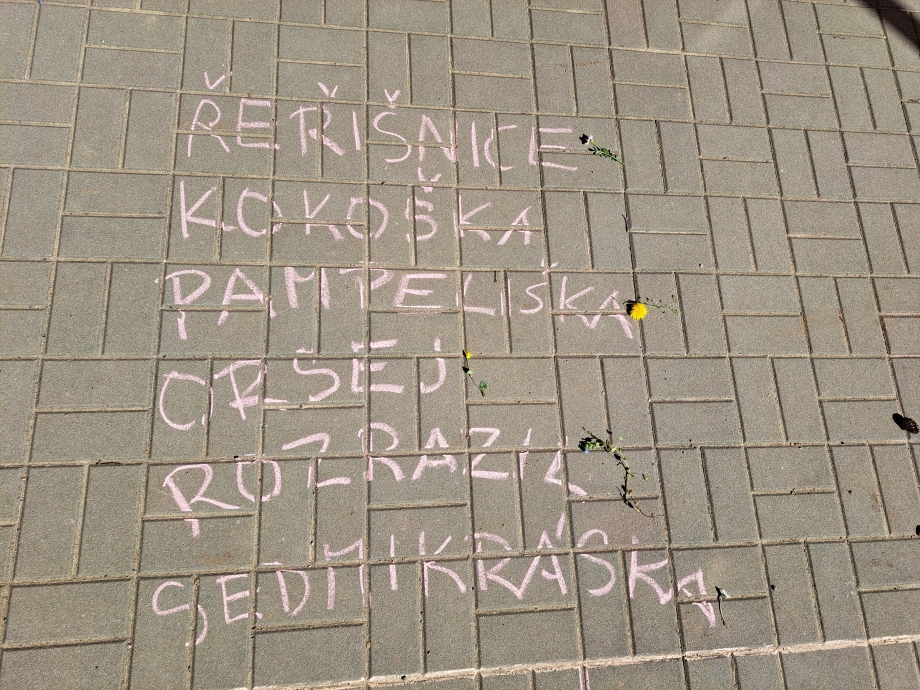 ŘEŘIŠNICE
KOKOŠKA
PAMPELIŠKA
CRSEJ
ROZRAZIL
SEDMIKRÁSKA